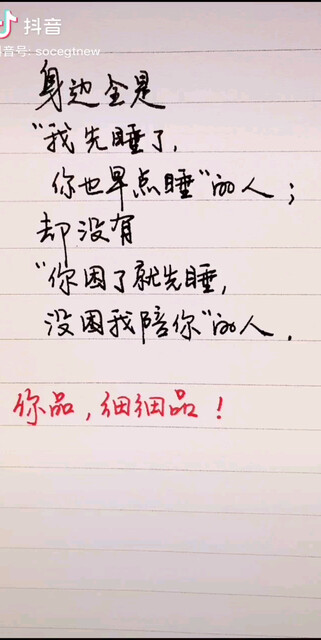 抖音
抖音号: socegtnew
身边全是
“我先睡了,
你也早点睡”的人;
却没有
“你困了就先睡,
没困我陪你”的人.
你品,细细品!